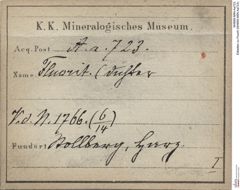 K. K. Mineralogisches Museum.
Acq. Post A. a. 723.
Name Fluorit. (dichter
V. d. N. 1766. (6/14)
Fundort Stollberg, Harz
I